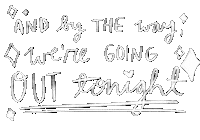 AND by THE way,
we're GOING
OUT tonight